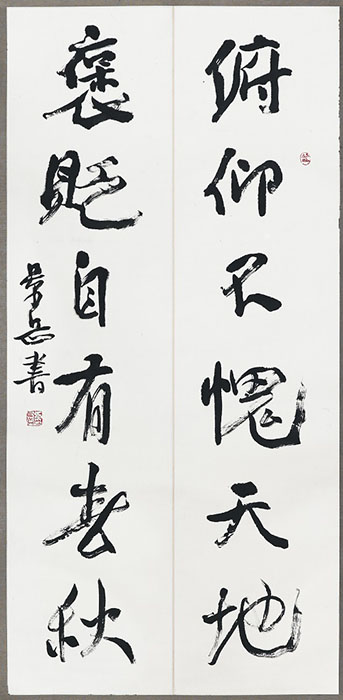 俯仰不愧天地
褒贬自有春秋
景岳書